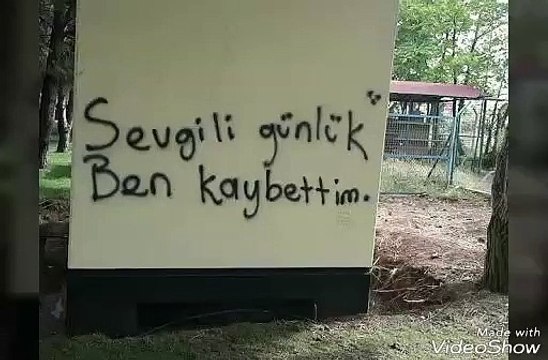 Sevgili günlük
Ben kaybettim.
Made with
VideoShow